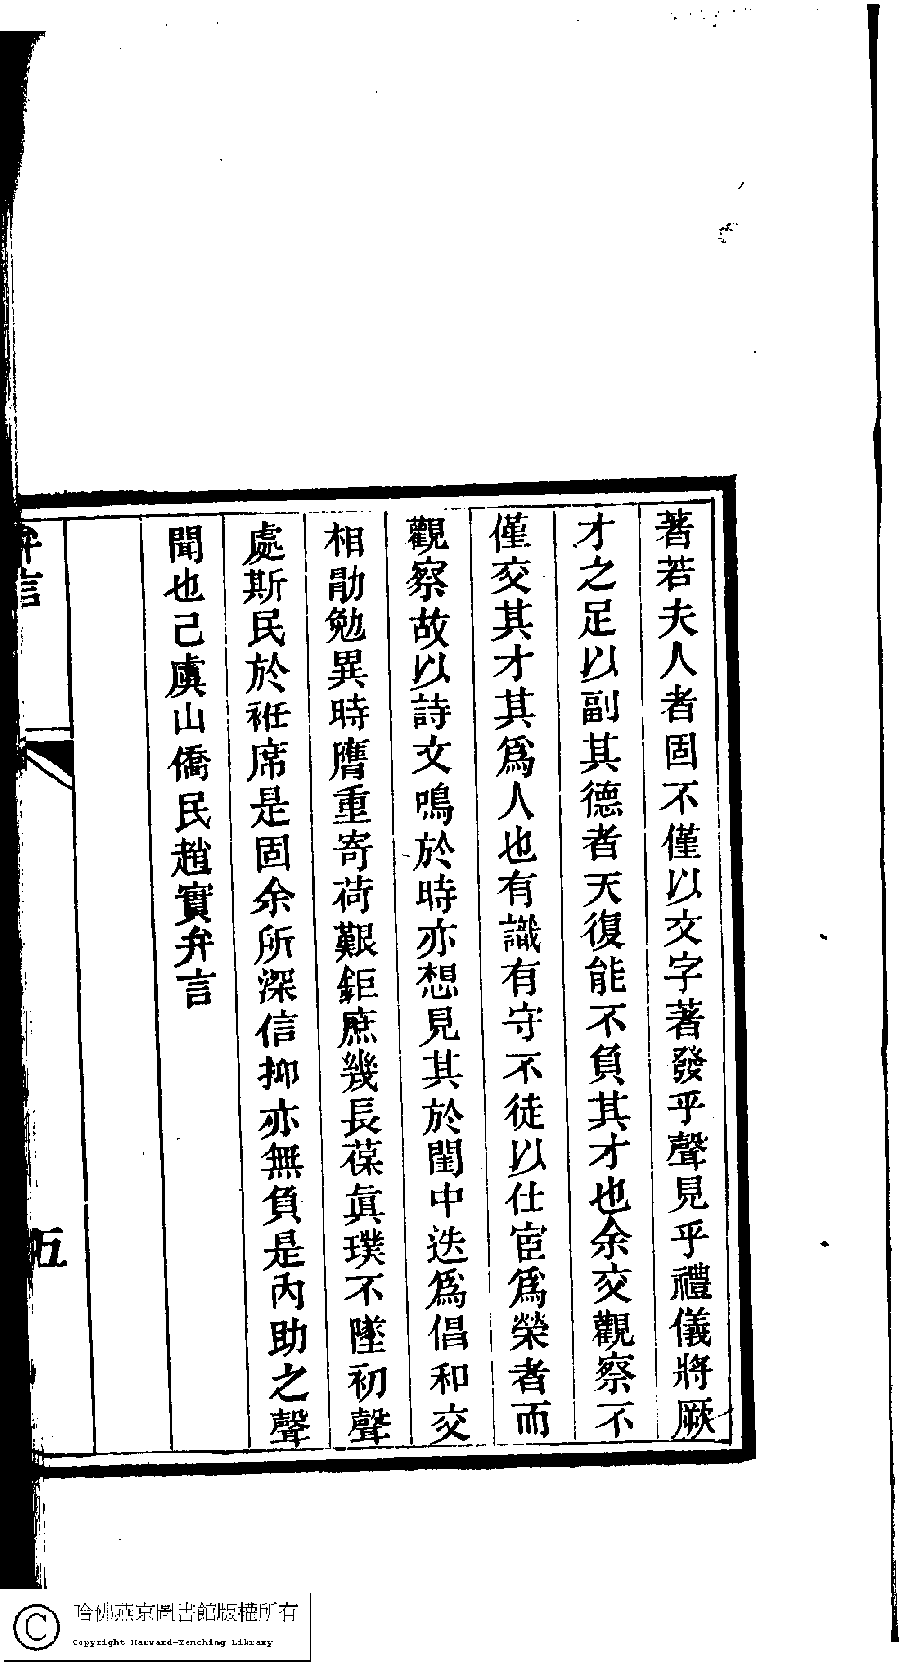 著若夫人者固不僅以文字著發乎聲見乎禮儀將厥
才之足以副其德者天復能不負其才也余交觀察不
僅交其才其爲人也有識有守不徒以仕宦爲榮者而
觀察故以詩文鳴於時亦想見其於閨中迭爲倡和交
相勖勉異時膺重寄荷艱鉅庶幾長葆眞璞不墜初聲
處斯民於袵席是固余所深信抑亦無負是內助之聲
聞也己虞山僑民趙實弁言
弁言
五
哈佛燕京圖書館版權所有
Copyright Harvard-Yenching Library